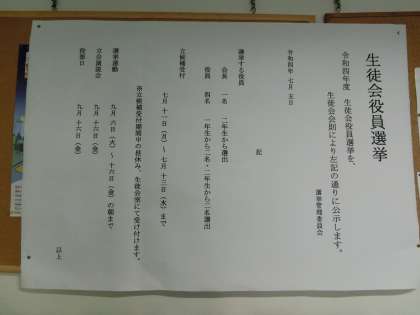 生徒会役員選挙
令和四年度　生徒会役員選挙を、
生徒会会則により左記の通りに公示します。
選挙管理委員会
令和四年　七月　五日
記
選挙する役員
会長　一名　二年生から選出
役員　四名　一年生から二名・二年生から二名選出
立候補受付
七月　十一日（月）～　七月　十三日（水）まで
※立候補受付期間中の昼休み、生徒会室にて受け付けます。
選挙運動　九月　六日（火）～　十六日（金）の朝まで
立会演説会　九月　十六日（金）
投票日　九月　十六日（金）
以上